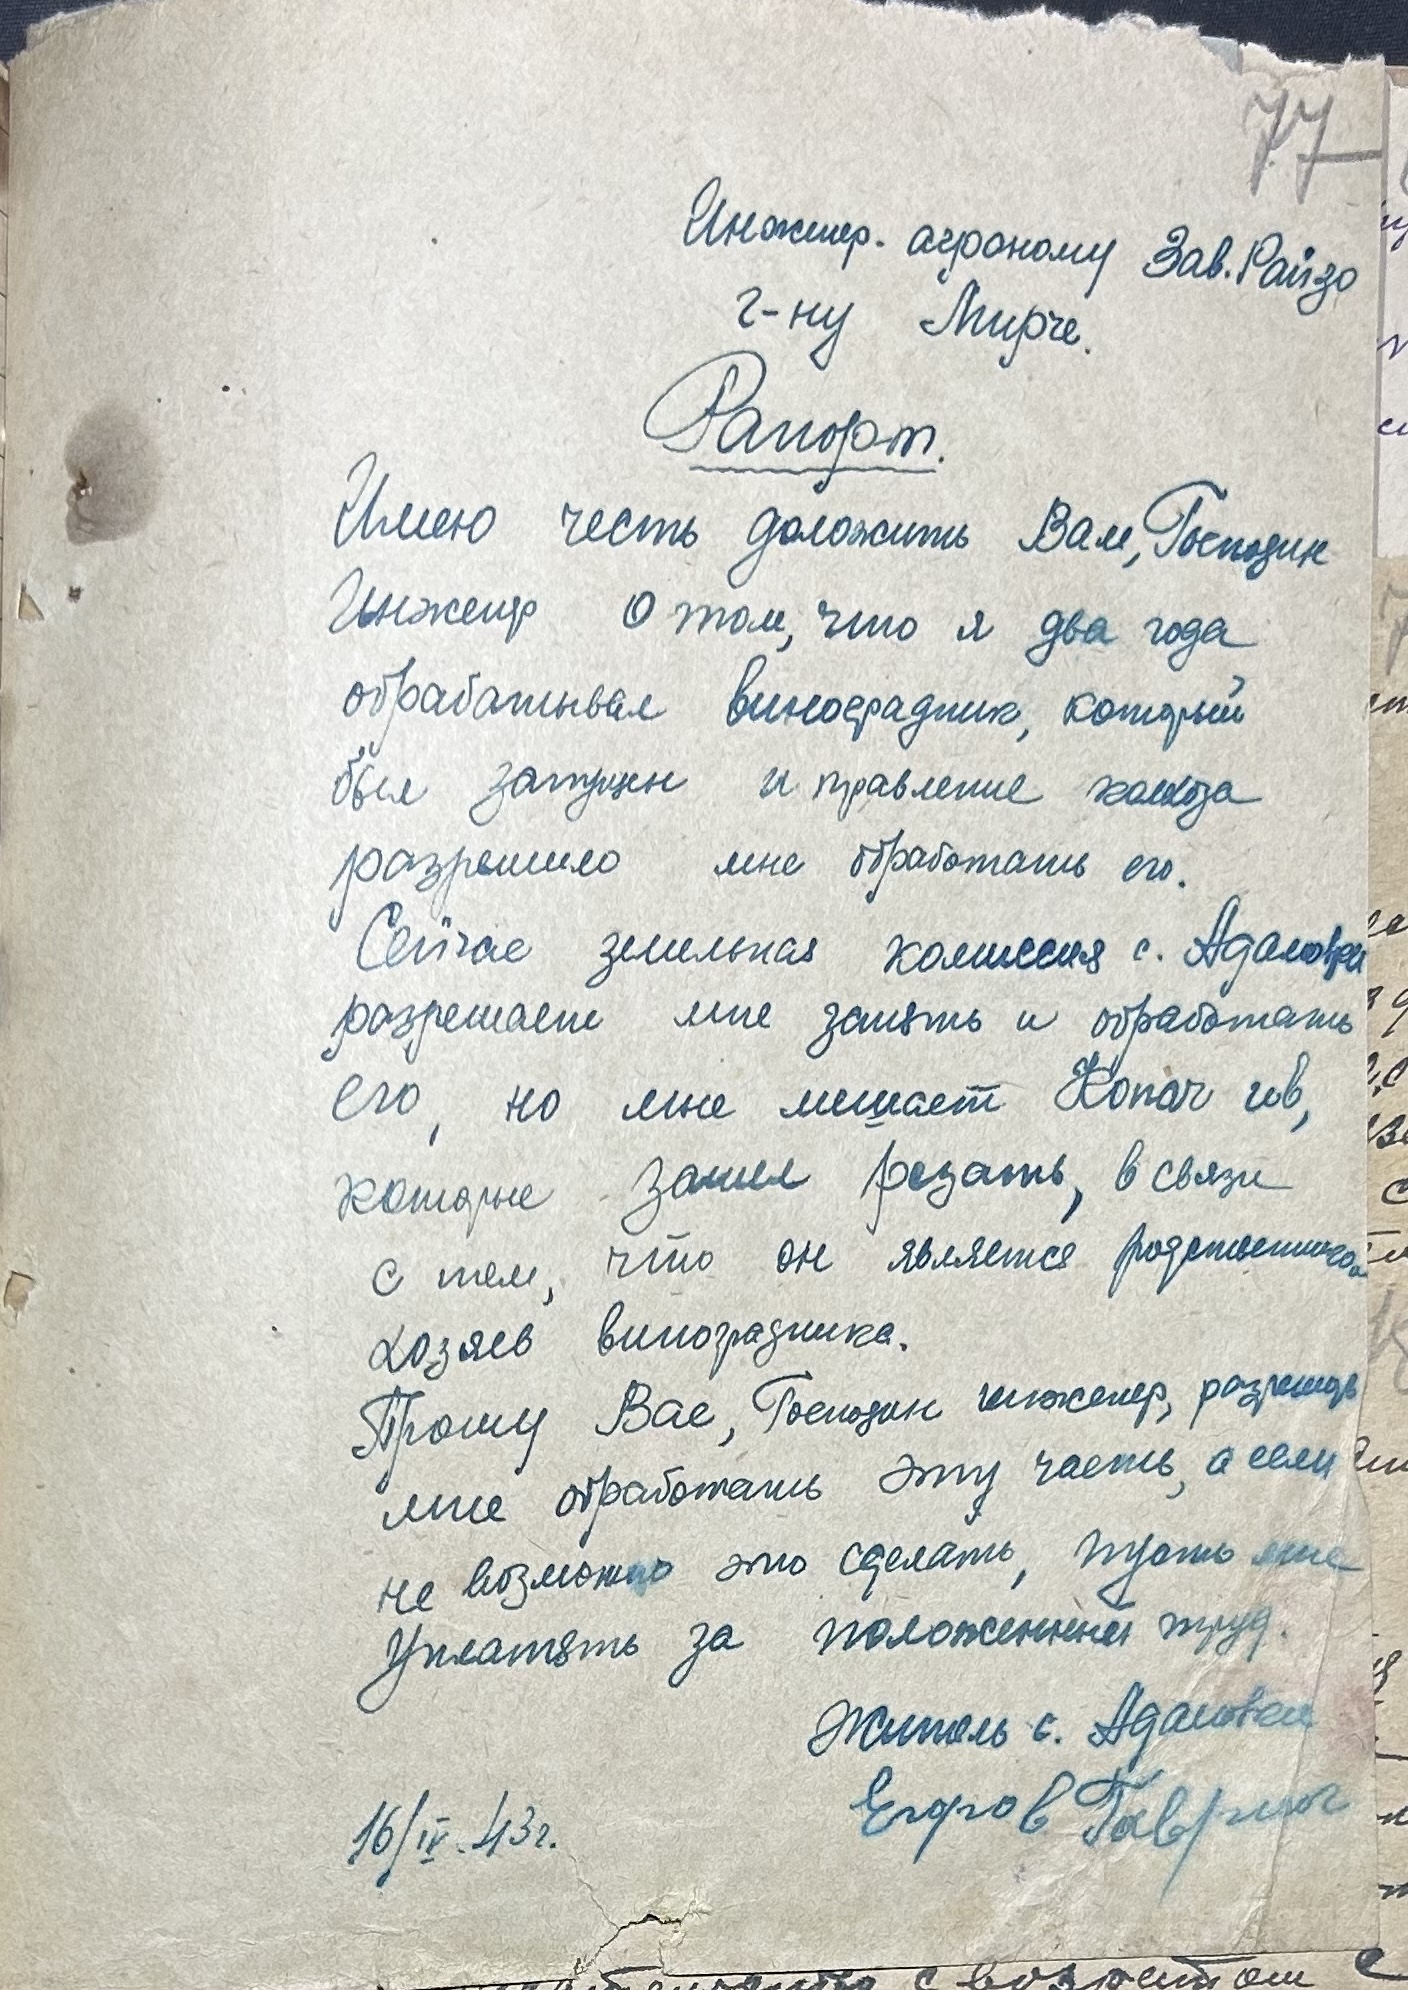 77
Инженер. агроному Зав. Райзо
г-ну Мирче.
Рапорт.
Имею честь доложить Вам, Господин
Инженер о том, что я два года
обрабатывал виноградник, который
был запущен и правление колхоза
разрешило мне обработать его.
Сейчас земельная комиссия с. Адамовки
разрешает мне занять и обработать
его, но мне мешает Копач
которые зашел резать, в связи
с тем, что он является
хозяев виноградника.
Прошу Вас, Господин инженер,
мне обработать эту часть, а если
не возможно это сделать, пусть мне
уплатять за положенный труд.
Житель с. Адамовки
Егоров
16/IV.43г.
с возрастом